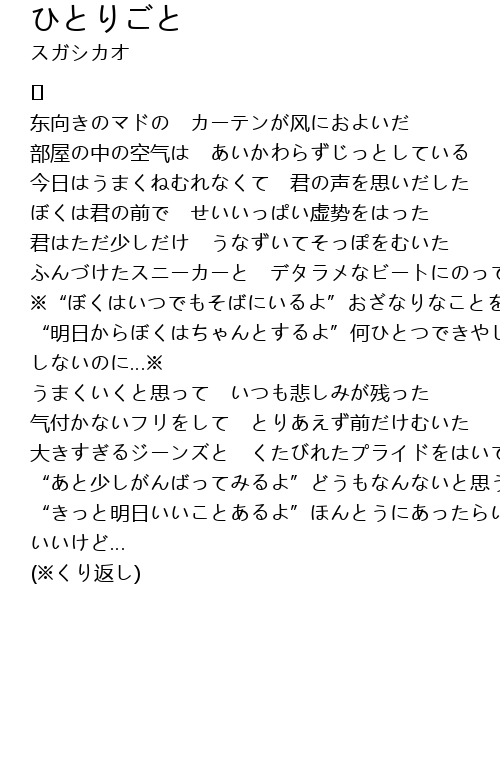 ひとりごと
スガシカオ
东向きのマドの　カーテンが风におよいだ
部屋の中の空气は　あいかわらずじっとしている
今日はうまくねむれなくて　君の声を思いだした
ぼくは君の前で　せいいっぱい虚势をはった
君はただ少しだけ　うなずいてそっぽをむいた
ふんづけたスニーカーと　デタラメなビートにのって
※“ぼくはいつでもそばにいるよ”おざなりなことを
“明日からぼくはちゃんとするよ”何ひとつできやし
しないのに...※
うまくいくと思って　いつも悲しみが残った
气付かないフリをして　とりあえず前だけむいた
大きすぎるジーンズと　くたびれたプライドをはいて
“あと少しがんばってみるよ”どうもなんないと思う
“きっと明日いいことあるよ”ほんとうにあったらい
いいけど...
(※くり返し)